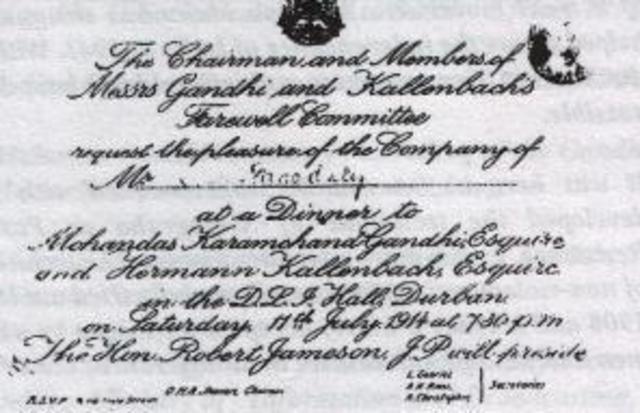 The Chairman and Members of
Messrs Gandhi and Kallenbach's
Farewell Committee
request the pleasure of the Company of
Mr
at a Dinner to
Mohandas Karamchand Gandhi, Esquire
and Hermann Kallenbach, Esquire
in the D.L.I. Hall, Durban
on Saturday, 11th July, 1914 at 7.30 p.m
The Hon. Robert Jameson, J.P. will preside
L. Gabriel
A. Christopher
Secretaries
R.S.V.P.
Chairman